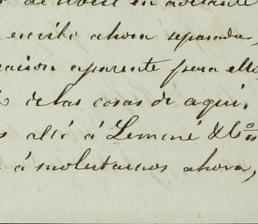 de Abril en adelante
escribí ahora separada,
racion aparente para ello
de las cosas de aqui.
allá á Lemené &Cia
á molestarnos ahora,